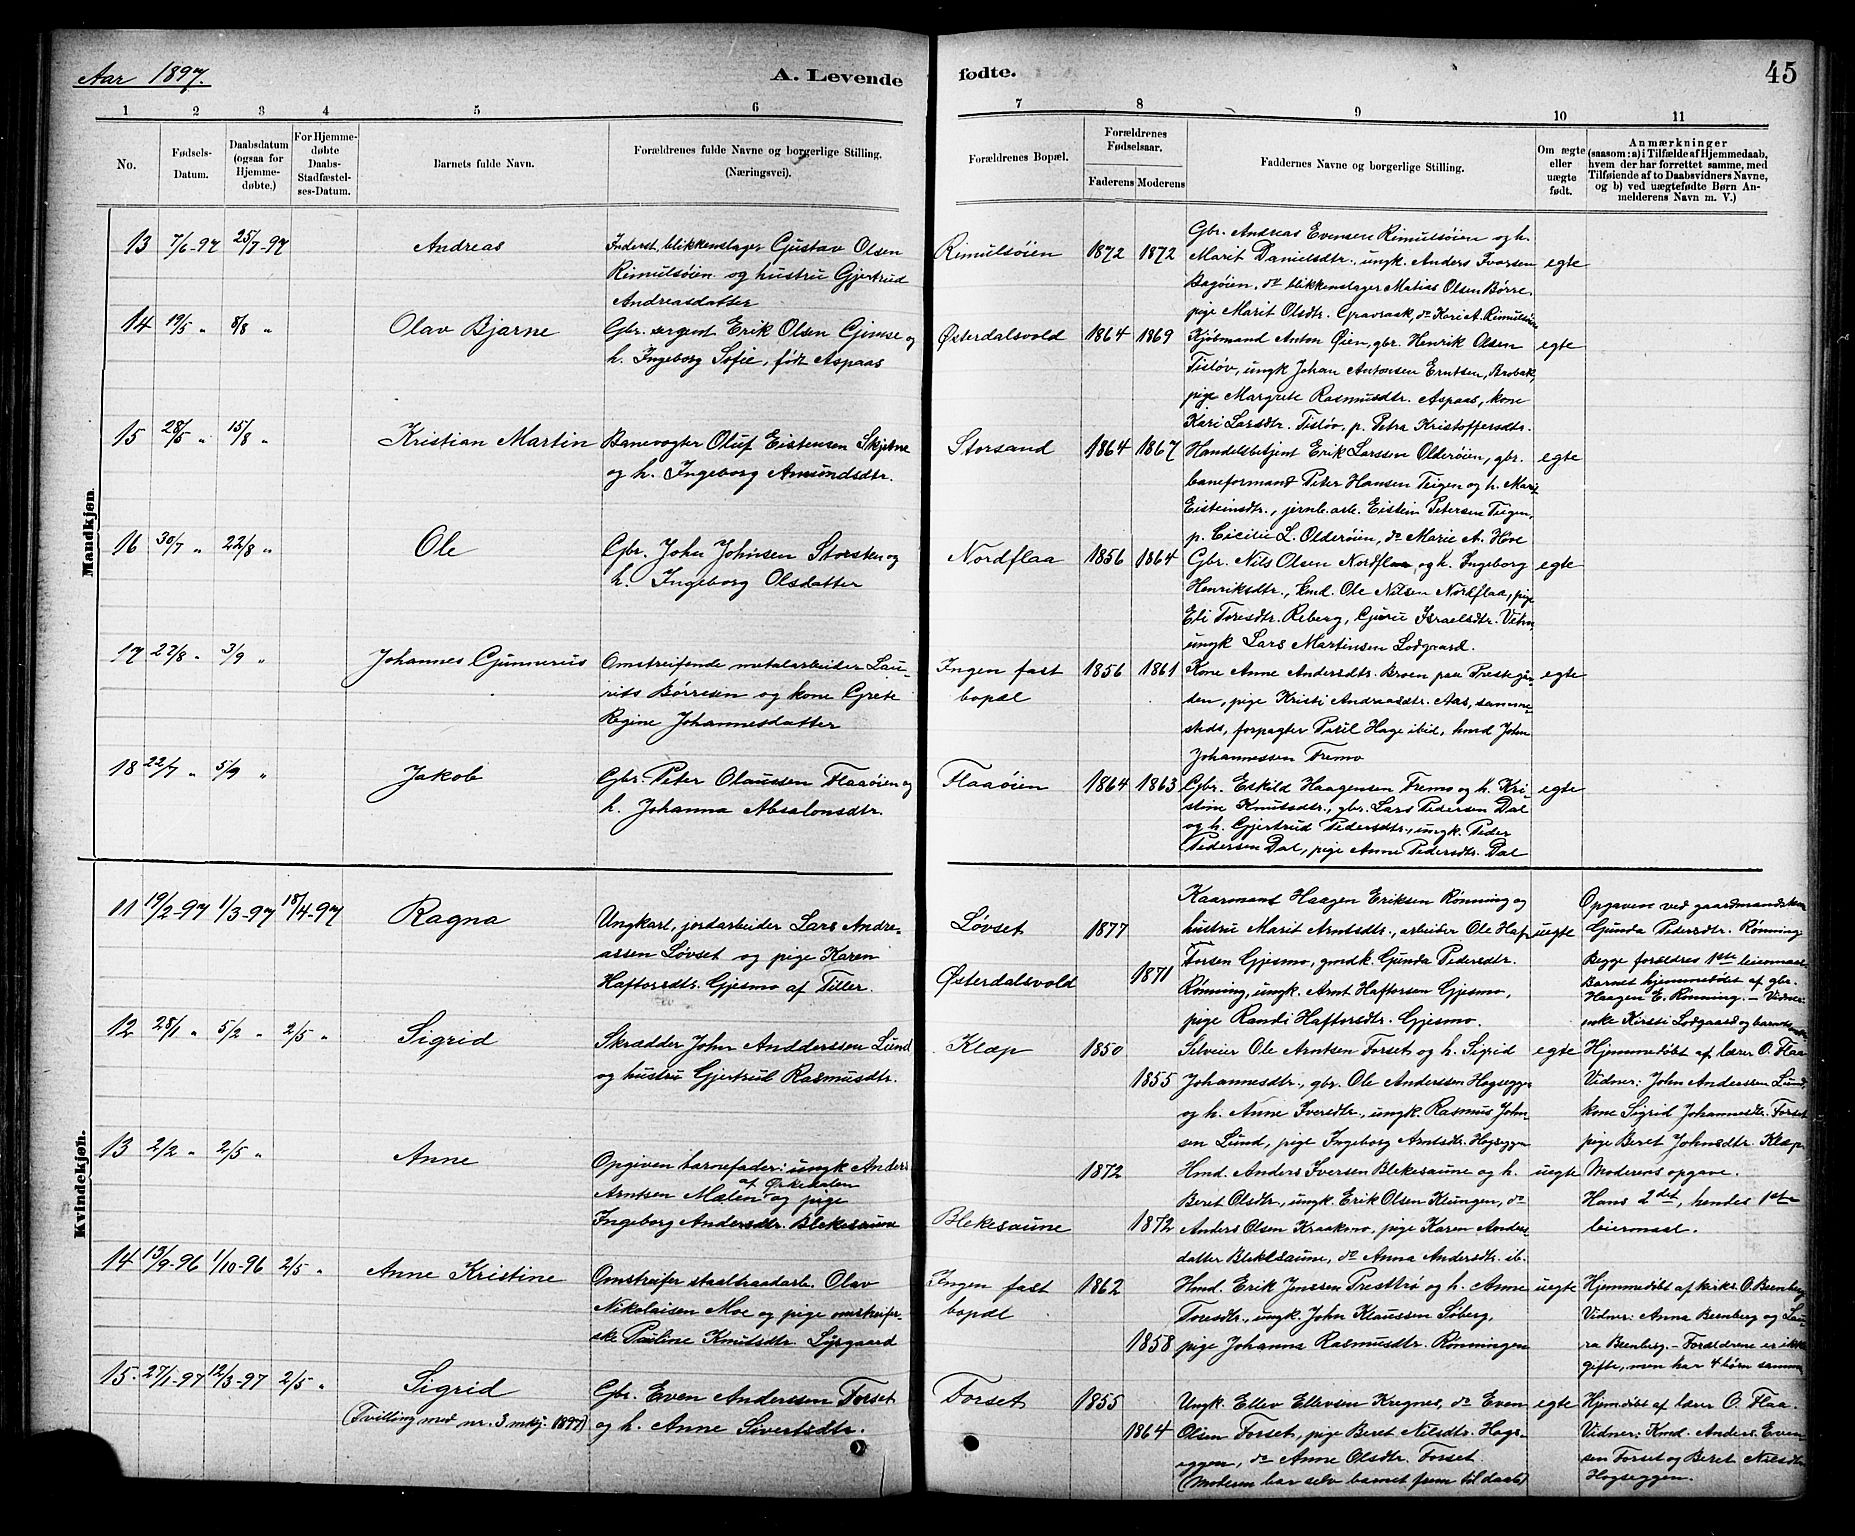 Aar 1897.
A. Levende
fødte.
45
1 2 3 4 5 6 7 8 9 10 11
No.
Fødsels-
Datum.
Daabsdatum
(ogsaa for
Hjemme-
døbte.)
For Hjemme-
døbte
Daabs-
Stadfæstel-
ses-Datum.
Barnets fulde Navn.
Forældrenes fulde Navne og borgerlige Stilling.
(Næringsvei).
Forældrenes Bopæl.
Forældrenes
Fødselsaar.
Faderens Moderens
Faddernes Navne og borgerlige Stilling.
Om ægte
eller
uægte
født.
Anmærkninger
(saasom: a) i Tilfælde af Hjemmedaab,
hvem der har forrettet samme, med
Tilføiende af to Daabsvidners Navne,
og b) ved uægtefødte Børn An-
melderens Navn m. V.)
Mandkjøn.
13 7/6-97 25/7-97 Andreas
Inderst, blikkenslager Gustav Olsen
Rimulsøien og hustru Gjertrud
Andreasdatter
Rimulsøien 1872 1872
Gbr. Andreas Evensen Rimulsøien og h.
Marit Danielsdtr., ungk. Anders Ivarsen
Bagøien, do blikkenslager Matias Olsen Børre,
pige Marit Olsdtr. Gravraak, do Kari A. Rimulsøien
egte
14 19/5 " 8/8 " Olav Bjarne
Gbr. sergent Erik Olsen Gimse og
h. Ingeborg Sofie, født Aspaas
Østerdalsvold 1864 1869
Kjøbmand Anton Øien, gbr. Henrik Olsen
Tisløv, ungk Johan Antonsen Erntsen, Brobak,
pige Margrete Rasmusdtr. Aspaas, kone
Kari Larsdtr. Tisløv, p. Petra Kristoffersdtr.
egte
15 28/5 " 15/8 " Kristian Martin
Banevogter Oluf Eistensen Skjetne
og h. Ingeborg Amundsdtr.
Storsand 1864 1867
Handelsbetjent Erik Larssen Olderøien, gbr.
baneformand Peter Hansen Teigen og h. Marit
Eisteinsdtr., jernb.arb. Eistein Petersen Teigen,
p. Cicilie L. Olderøien, do Marie A. Hove
egte
16 30/7 " 22/8 " Ole
Gbr. John Johnsen Storsten og
h. Ingeborg Olsdatter
Nordflaa 1856 1864
Gbr. Nils Olsen Nordflaa, og h. Ingeborg
Henriksdtr., kmd. Ole Nilsen Nordflaa, pige
Eli Toresdtr. Reberg, Guru Israelsdtr. Vehn,
ungk Lars Martinsen Lodgaard.
egte
17 27/8 " 3/9 " Johannes Gunnerus
Omstreifende metalarbeider Lau-
rits Børresen og kone Grete
Regine Johannesdatter
Ingen fast
bopæl
1856 1861
Kone Anne Andersdtr. Broen paa Prestegar-
den, pige Kristi Andreasdtr. Aas, samme-
steds, forpagter Paul Hage ibid, hmd John
Johannessen Fremo
egte
18 22/7 " 5/9 " Jakob
Gbr. Peter Olaussen Flaaøien og
h. Johanna Absalonsdtr.
Flaaøien 1864 1863
Gbr. Eskild Haagensen Fremo og h. Kri-
stine Knutsdtr., gbr. Lars Pedersen Dal
og h. Gjertrud Pedersdtr., ungk. Peder
Pedersen Dal, pige Anne Pedersdtr. Dal
egte
Kvindekjøn.
11 19/2-97 1/3-97 18/4-97 Ragna
Ungkarl, jordarbeider Lars Andre-
assen Løvset og pige Karen
Haftorsdtr. Gjesmo af Tiller.
Løvset 1877
Østerdalsvold 1871
Kaarmand Haagen Eriksen Rønning og
hustru Marit Arntsdtr., arbeider Ole Haf-
torsen Gjesmo, gmdk. Gunda Pedersdtr.
Rønning, ungk. Arnt Haftorsen Gjesmo,
pige Randi Haftorsdtr. Gjesmo.
uegte
Opgaven ved gaardmandskone
Gunda Pedersdtr. Rønning
Begge forældres 1ste leiermaal
Barnet hjemmedøbt af gbr.
Haagen E. Rønning. - Vidner
enke Kirsti Lodgaard og
12 28/1 " 5/2 " 2/5 " Sigrid
Skrædder John Anddersen Lund
og hustru Gjertrud Rasmusdtr.
Klæp 1850
1855
Selveier Ole Arntsen Forset og h. Sigrid
Johannesdtr., gbr. Ole Anderssen Hogseggen
og h. Anne Iversdtr., ungk. Rasmus John-
sen Lund, pige Ingeborg Arntsdtr. Hogseggen
egte
Hjemmedøbt af lærer O. Flaa
Vidner: John Anderssen Lund,
kone Sigrid Johannesdtr. Forset
pige Beret Johnsdtr. Klæp
13 2/2 " 2/5 " Anne
Opgiven barnefader: ungk Anders
Arntsen Mælen af Ørkedalen og pige
Ingeborg Andersdtr. Blekesaune
1872
Blekesaune 1872
Hmd. Anders Iversen Blekesaune og h.
Beret Olsdtr., ungk. Erik Olsen Klungen, do
Anders Olsen Kraakmo, pige Karen Anders-
datter Blekesaune, do Anna Andersdtr. ib.
uegte
Moderens opgave.
Hans 2det, hendes 1ste
leiermaal.
14 13/9-96 1/10-96 2/5 " Anne Kristine
Omstreifer staaltraadarb. Olav
Nikolaisen Moe og pige omstreifer-
ske Pauline Knutsdtr. Lysgaard
Ingen fast
bopæl
1862
1858
Hmd. Erik Jenssen Presttrø og h. Anne
Toresdtr., ungk. John Klaussen Søberg,
pige Johanna Rasmusdtr. Rønningen
uegte
Hjemmedøbt af kirks. O. Beenberg
Vidner: Anna Beenberg og Lau-
ra Beenberg. - Forældrene er ikke
gifte, men har 4 børn samme
15. 27/1-97 12/3-97 2/5 " Sigrid
(Tvilling med nr. 3 mkj. 1897)
Gbr. Even Anderssen Forset
og h. Anne Sivertsdtr.
Forset 1855
1864
Ungk. Ellev Ellevsen Kregnes, do Even
Olsen Forset, pige Beret Nilsdtr. Hogs-
eggen, do Anne Olsdtr. Forset
(Moderen har selv barnet frem til daaben)
egte
Hjemdøbt af lærer O. Flaa.
Vidner: Kmd. Anders Even-
sen Forset og Beret Nilsdtr.
Hogseggen.